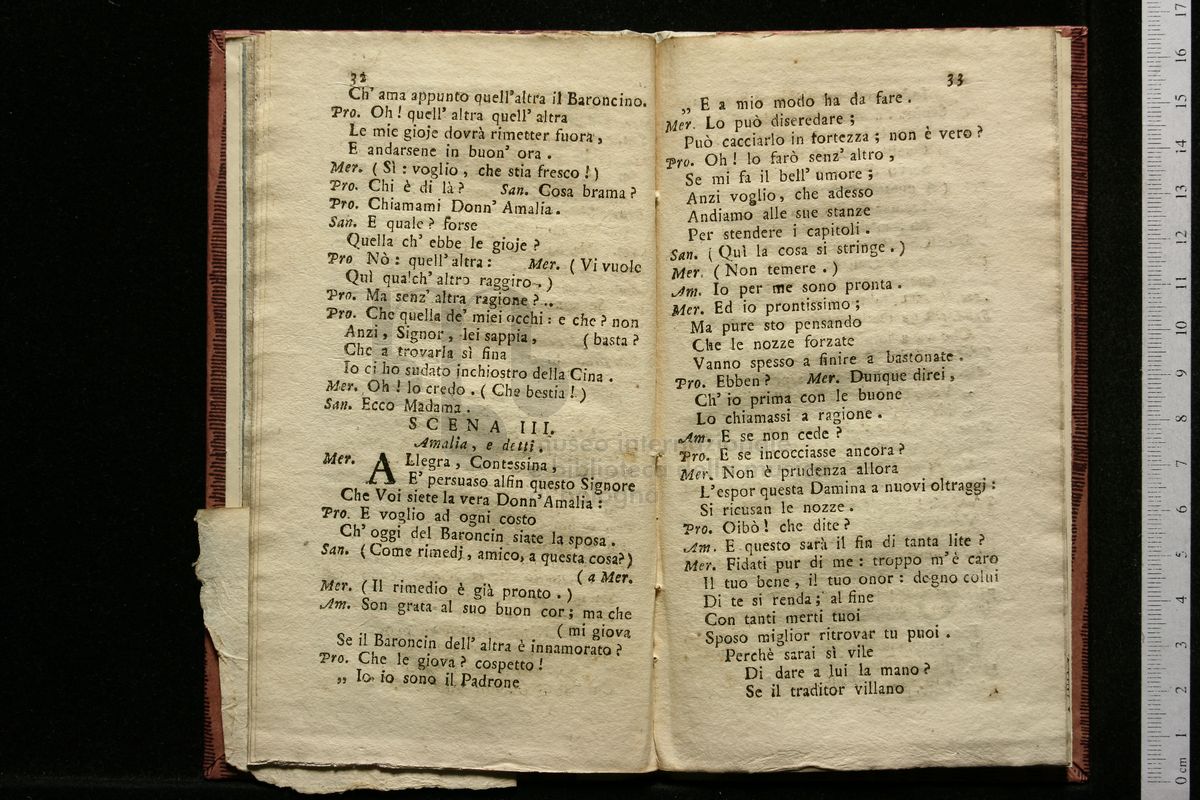 32
Ch' ama appunto quell'altra il Baroncino.
Pro. Oh! quell' altra quell' altra
Le mie gioje dovrà rimetter fuora,
E andarsene in buon' ora.
Mer. (Sì: voglio, che stia fresco!)
Pro. Chi è di là? San. Cosa brama?
Pro. Chiamami Donn' Amalia.
San. E quale? forse
Quella ch' ebbe le gioje?
Pro Nò: quell' altra: Mer. (Vi vuole
Quì qualch' altro raggiro.)
Pro. Ma senz' altra ragione?..
Pro. Che quella de' miei occhi: e che? non
Anzi, Signor, lei sappia, (basta?
Che a trovarla sì fina
Io ci ho sudato inchiostro della Cina.
Mer. Oh! lo credo. (Che bestia!)
San. Ecco Madama.
SCENA III.
Amalia, e detti.
Mer. ALlegra, Contessina,
E' persuaso alfin questo Signore
Che Voi siete la vera Donn' Amalia:
Pro. E voglio ad ogni costo
Ch' oggi del Baroncin siate la sposa.
San. (Come rimedj, amico, a questa cosa?)
(a Mer.
Mer. (Il rimedio è già pronto.)
Am. Son grata al suo buon cor; ma che
(mi giova
Se il Baroncin dell' altra è innamorato?
Pro. Che le giova? cospetto!
„ Io, io sono il Padrone
33
„ E a mio modo ha da fare.
Mer. Lo può diseredare;
Può cacciarlo in fortezza; non è vero?
Pro. Oh! lo farò senz' altro,
Se mi fa il bell' umore;
Anzi voglio, che adesso
Andiamo alle sue stanze
Per stendere i capitoli.
San. (Quì la cosa si stringe.)
Mer. (Non temere.)
Am. Io per me sono pronta.
Mer. Ed io prontissimo;
Ma pure sto pensando
Che le nozze forzate
Vanno spesso a finire a bastonate.
Pro. Ebben? Mer. Dunque direi,
Ch' io prima con le buone
Lo chiamassi a ragione.
Am. E se non cede?
Pro. E se incocciasse ancora?
Mer. Non è prudenza allora
L'espor questa Damina a nuovi oltraggj:
Si ricusan le nozze.
Pro. Oibò! che dite?
Am. E questo sarà il fin di tanta lite?
Mer. Fidati pur di me: troppo m'è caro
Il tuo bene, il tuo onor: degno colui
Di te si renda; al fine
Con tanti merti tuoi
Sposo miglior ritrovar tu puoi.
Perchè sarai sì vile
Di dare a lui la mano?
Se il traditor villano